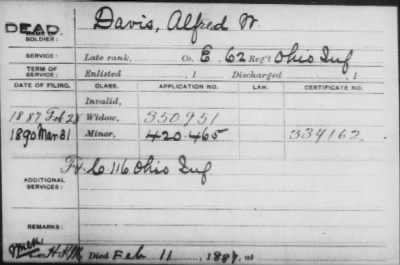 DEAD NAME OF SOLDIER: Davis, Alfred W.
SERVICE: Late rank, Co. E. 62 Reg't Ohio Inf
TERM OF SERVICE: Enlisted , 1 Discharged , 1
DATE OF FILING. CLASS. APPLICATION NO. LAW. CERTIFICATE NO.
Invalid,
1887 Feb 28 Widow, 350951
1890 Mar 31 Minor, 420.465 334162
ADDITIONAL SERVICES: C. 116 Ohio Inf
REMARKS:
Died Feb 11, 1887, at